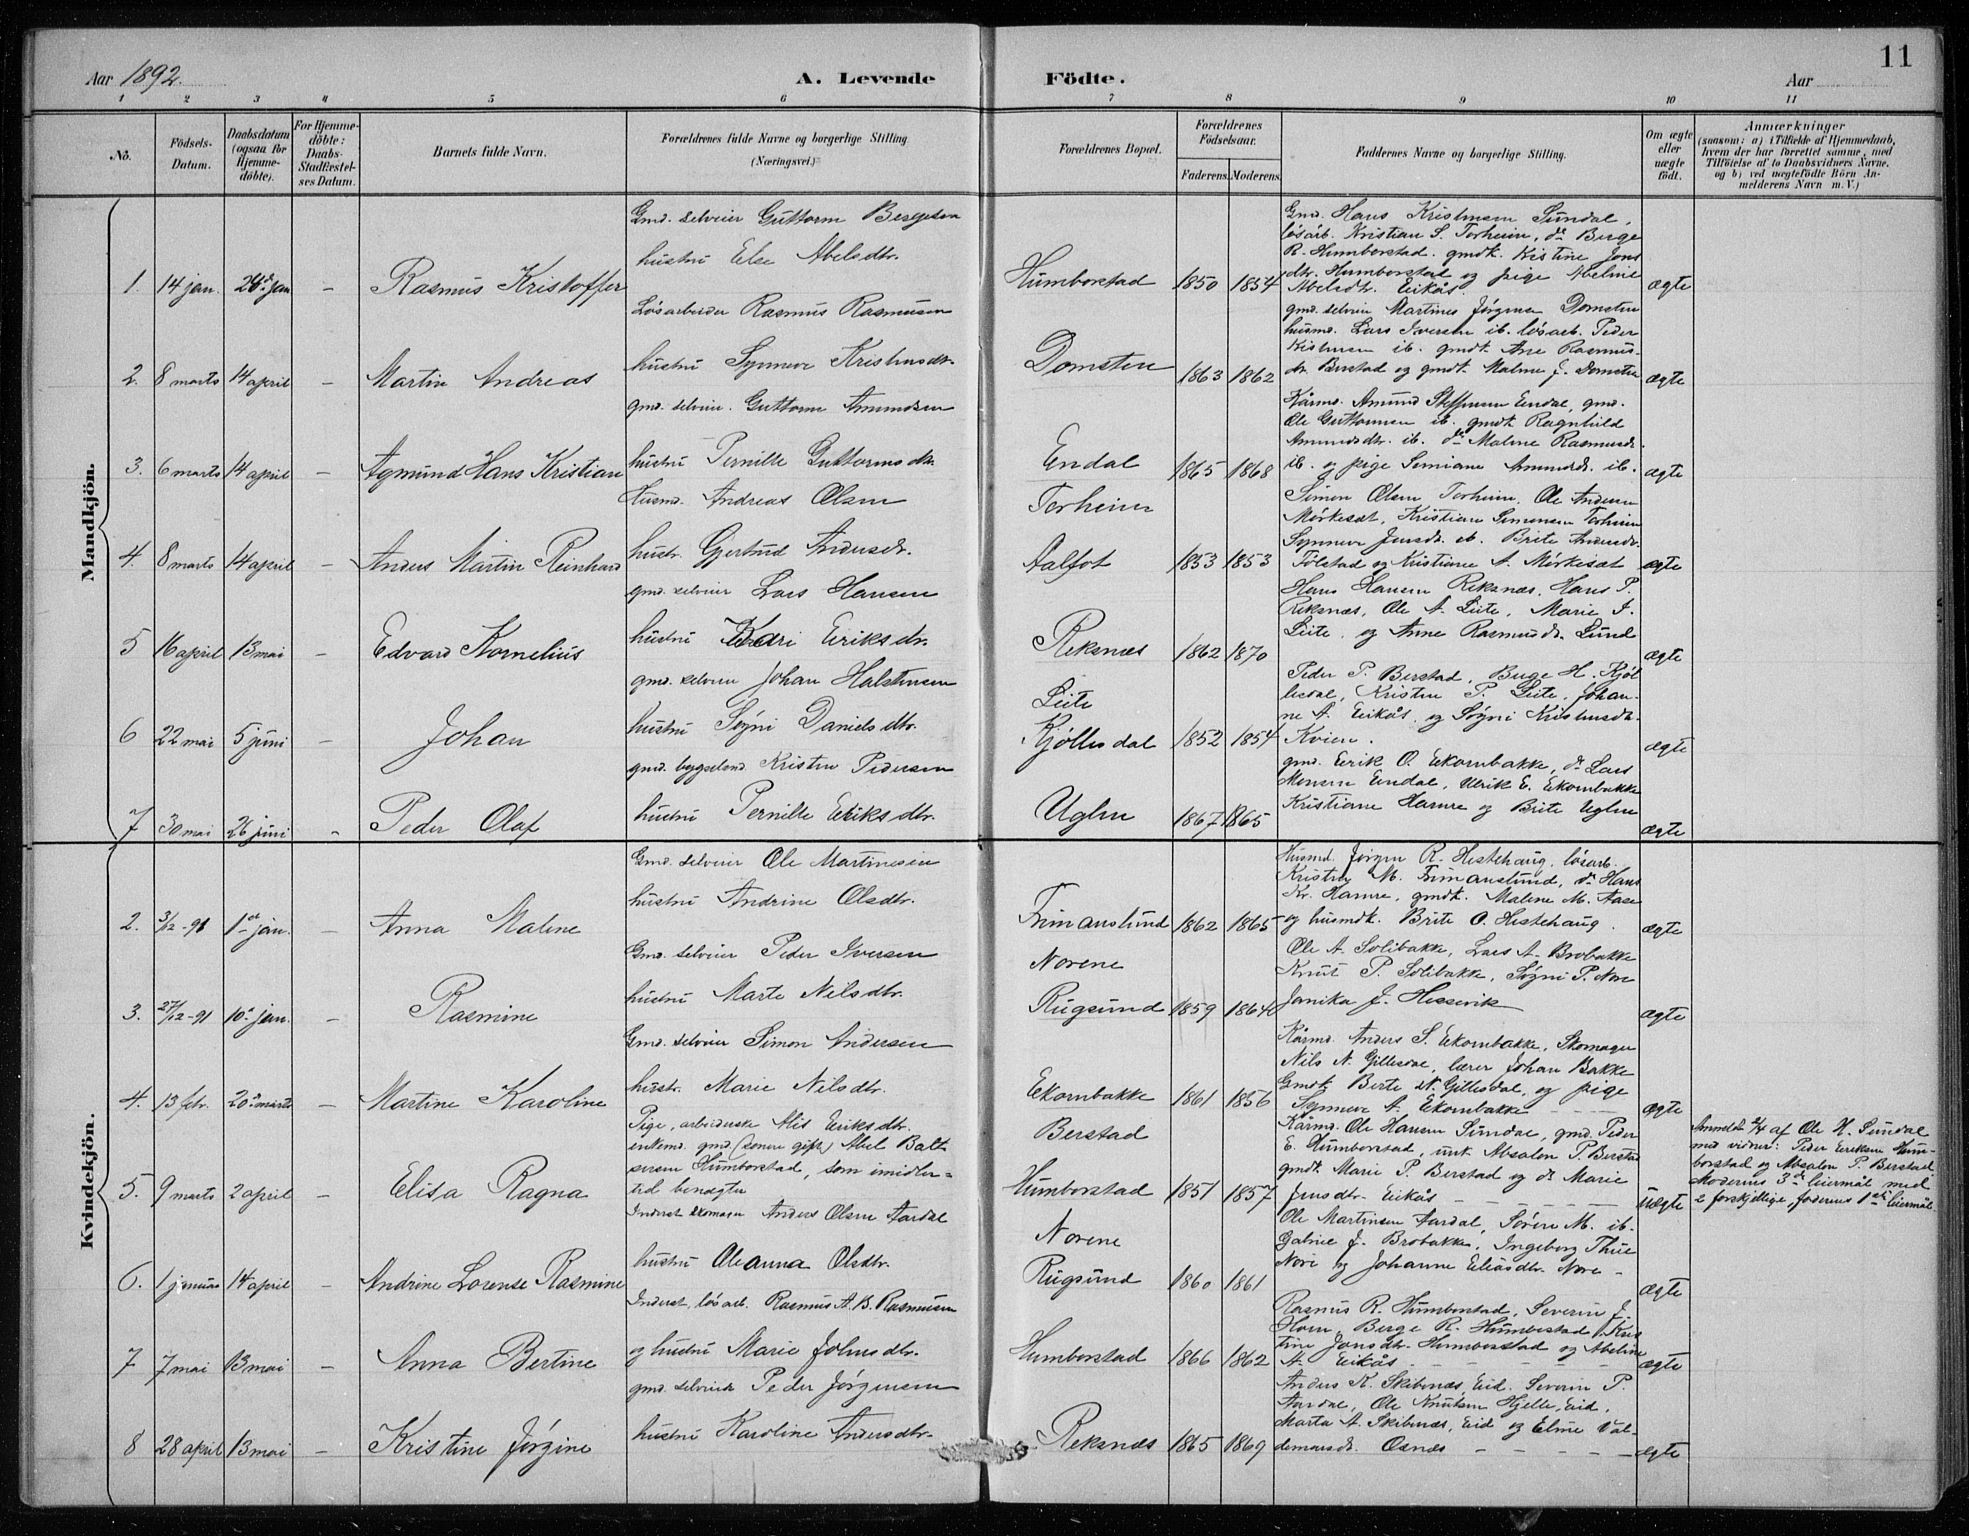 11
Aar 1892.
A. Levende Födte.
Aar
1 2 3 4 5 6 7 8 9 10 11
No.
Födsels-Datum.
Daabsdatum (ogsaa for Hjemme-döbte).
For Hjemme-döbte: Daabs-Stadfæstel-ses Datum.
Barnets fulde Navn.
Forældrenes fulde Navne og borgerlige Stilling
(Næringsvei.)
Forældrenes Bopæl.
Forældrenes Födselsaar.
Faderens. Moderens.
Faddernes Navne og borgerlige Stilling.
Om ægte eller uægte födt.
Anmærkninger
(saasom: a) i Tilfælde af Hjemmedaab,
hvem der har forrettet samme, med
Tilföielse af to Daabsvidners Navne,
og b) ved uægtefödte Börn An-
melderens Navn m. V.)
Mandkjön.
Gmd. selveier Guttorm Bergesen
hustru Else Abelsdtr.
1. 14 jan. 24 jan – Rasmus Kristoffer
Humborstad 1850 1854
Gmd. Hans Kristensen Sundal,
løsarb. Kristian S. Torheim, do Berge
R. Humborstad. gmdk. Kristine Jons
dtr. Humborstad og pige Abeline
Abelsdtr. Eikås.
ægte
Løsarbeider Rasmus Rasmusen
hustru Synneve Kristensdtr.
2. 8 marts 14 april – Martin Andreas
Domsten 1863 1862
gmd. selveier Martines Jørgensen Domsten
husmd. Lars Iversen ib. løsarb. Peder
Kristensen ib. gmdk. Ane Rasmus-
dr. Berstad og gmdt. Malene J. Domsten
ægte
gmd. selveier. Guttorm Amundsen
hustru Pernille Guttormsdtr.
3. 6 marts 14 april – Agmund Hans Kristian
Endal 1865 1868
Kårmd. Amund Steffensen Endal, gmd.
Ole Guttormsen ib. gmdt. Ragnhild
Amundsdtr. ib. do Malene Rasmusdr.
ib. og pige Semiane Amundsdr. ib.
ægte
Husmd. Andreas Olsen
hustr. Gjertrud Andersdr.
4. 8 marts 14 april – Anders Martin Reinhard
Torheim
Aalfot 1853 1853
Simon Olsen Torheim, Ole Andersen
Mørkesæt, Kristian Simonsen Torheim
Synneve Jensdr. ib. Brite Andersdr.
Tølstad og Kristiane A. Mørkesæt
ægte
gmd. selveier Lars Hansen
hustru Kari Eriksdtr.
5 16 april 13 mai – Edvard Kornelius
Reksnæs 1862 1870
Hans Hansen Reksnæs, Hans P.
Reksnæs, Ole A. Leite, Marie J.
Leite og Anne Rasmusdr. Lund
ægte
gmd. selveier Johan Halstensen
hustru Søgni Danielsdtr.
6 22 mai 5 juni – Johan
Leite
Kjøllesdal 1852 1854
Peder P. Berstad, Berge H. Kjøl
lesdal, Kristen P. Leite, Johan-
ne A. Eikås og Søgni Kristensdtr.
Kvien.
ægte
gmd. bygselmd. Kristen Pedersen
hustru Pernille Eriksdtr.
7 30 mai 26 juni – Peder Olaf
Uglen 1867 1865
gmd. Eirik O. Ekornbakke, do Lars
Monsen Endal, Ulrik E. Ekornbakke
Kristiane Hamre og Brite Uglen
ægte
Kvindekjön.
Gmd. selveier Ole Martinesen
hustru Andrine Olsdtr.
2. 3/12-91 1st jan. – Anna Malene
Frimanslund 1862 1865
Husmd. Jørgen R. Hestehaug, løsarb.
Kristen M. Frimanslund, do Hans
Kr. Hamre, gmdt. Malene M. Aase
og husmdk. Brite O. Hestehaug.
ægte
Gmd. selveier Peder Iversen
hustru Marte Nilsdtr.
3. 27/12-91 10 jan. – Rasmine
Norene
Rugsund 1859 1864
Ole A. Solibakke, Lars A. Brobakke
Knut P. Solibakke, Søgni P. Nore
Janika J. Hessevik
ægte
Gmd. selveier Simon Andersen
hustr. Marie Nilsdtr.
4. 13 febr. 20 marts – Martine Karoline
Ekornbakke 1861 1856
Kårmd. Anders S. Ekornbakke, Skomager
Nils N. Gillesdal, lærer Johan Bakke
Gmdk Berte N. Gillesdal, og pige
Synneve A. Ekornbakke
ægte
Pige, arbeiderske Alis Eriksdtr.
enkemd. gmd. (senere gift) Abel Balt
sersen Humborstad, som imidler-
tid benægter
5. 9 marts 2 april – Elisa Ragna
Berstad
Humborstad 1851 1857
Kårmd. Ole Hansen Sundal, gmd. Peder
E. Humborstad, unk. Absalon P. Berstad
gmdt. Marie P. Berstad og do Marie
Jensdtr. Eikås
uægte
Anmeldt 2/4 af Ole H. Sundal
med vidner: Peder Eriksen Hum-
borstad og Absalon P. Berstad
Moderens 3die leiermål med
2 forskjellige, faderens 1ste leiermål.
Inderst skomager Anders Olsen Aardal
hustru Oleanna Olsdtr.
6. 1 januar 14 april – Andrine Lorense Rasmine
Norene
Rugsund 1860 1861
Ole Martinsen Aardal, Søren M. ib.
Gabriel J. Brobakke, Ingeborg Thue
Nore og Johanne Eliasdtr. Nore –
ægte
Inderst, løsarb. Rasmus A. B. Rasmusen
og hustru Marie Johnsdtr.
7 7 mai 13 mai – Anna Bertine
Humborstad 1866 1862
Rasmus R. Humborstad, Severin J.
Horn, Berge R. Humborstad, Kris
tine Jonsdtr. Humborstad og Abeline
A. Eikås
ægte
gmd. selveier Peder Jørgensen
hustru Karoline Andersdtr.
8 28 april 13 mai – Kristine Jørgine
Reksnæs 1865 1869
Anders K. Skibenæs, Eid. Severin P.
Aardal, Ole Knutsen Hjelle, Eid,
Marta A. Skibenæs, Eid og Eline Val-
demarsdr. Osnæs
ægte